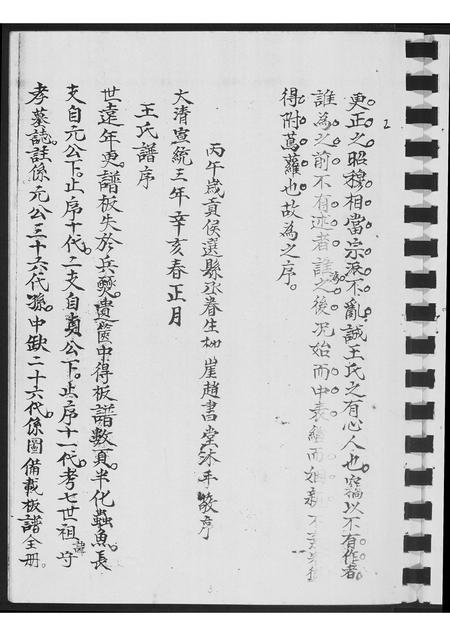 2
更正之昭穆相當宗派不亂誠王氏之有心人也竊以不有作者
誰為之前不有述者誰為之後况始而中表繼而姻
得附蔦蘿也故為之序。
丙午歲貢候選縣丞眷生 崖趙書堂沐手敬序
大清宣統三年辛亥春正月
王氏譜序
世遠年更。譜板失於兵燹。遺篋中得板譜數頁。半化蟲魚。長
支自元公下。止序十代。二支自貞公下。止序十一代。考七世祖諱守
孝墓誌註係元公三十六代孫。中缺二十六代。係圖備載板譜全册。